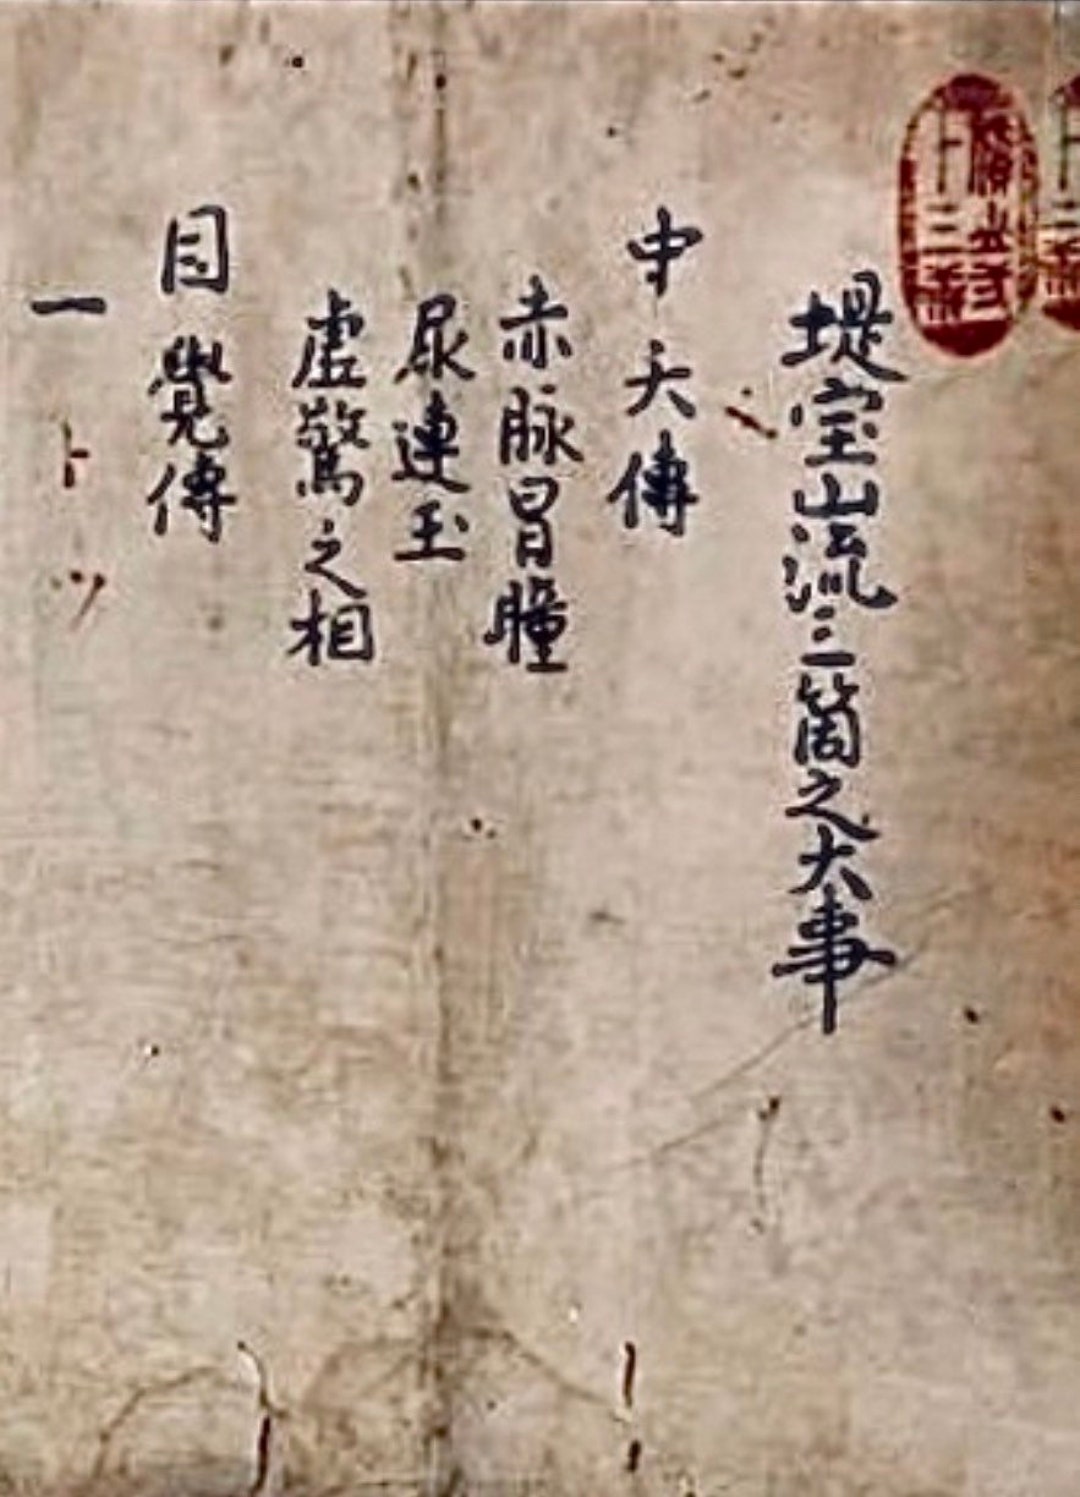 堤宝山流三箇之大事
中天傳
赤脉冒瞳
尿連玉
虚驚之相
目覺傳
一
トツ